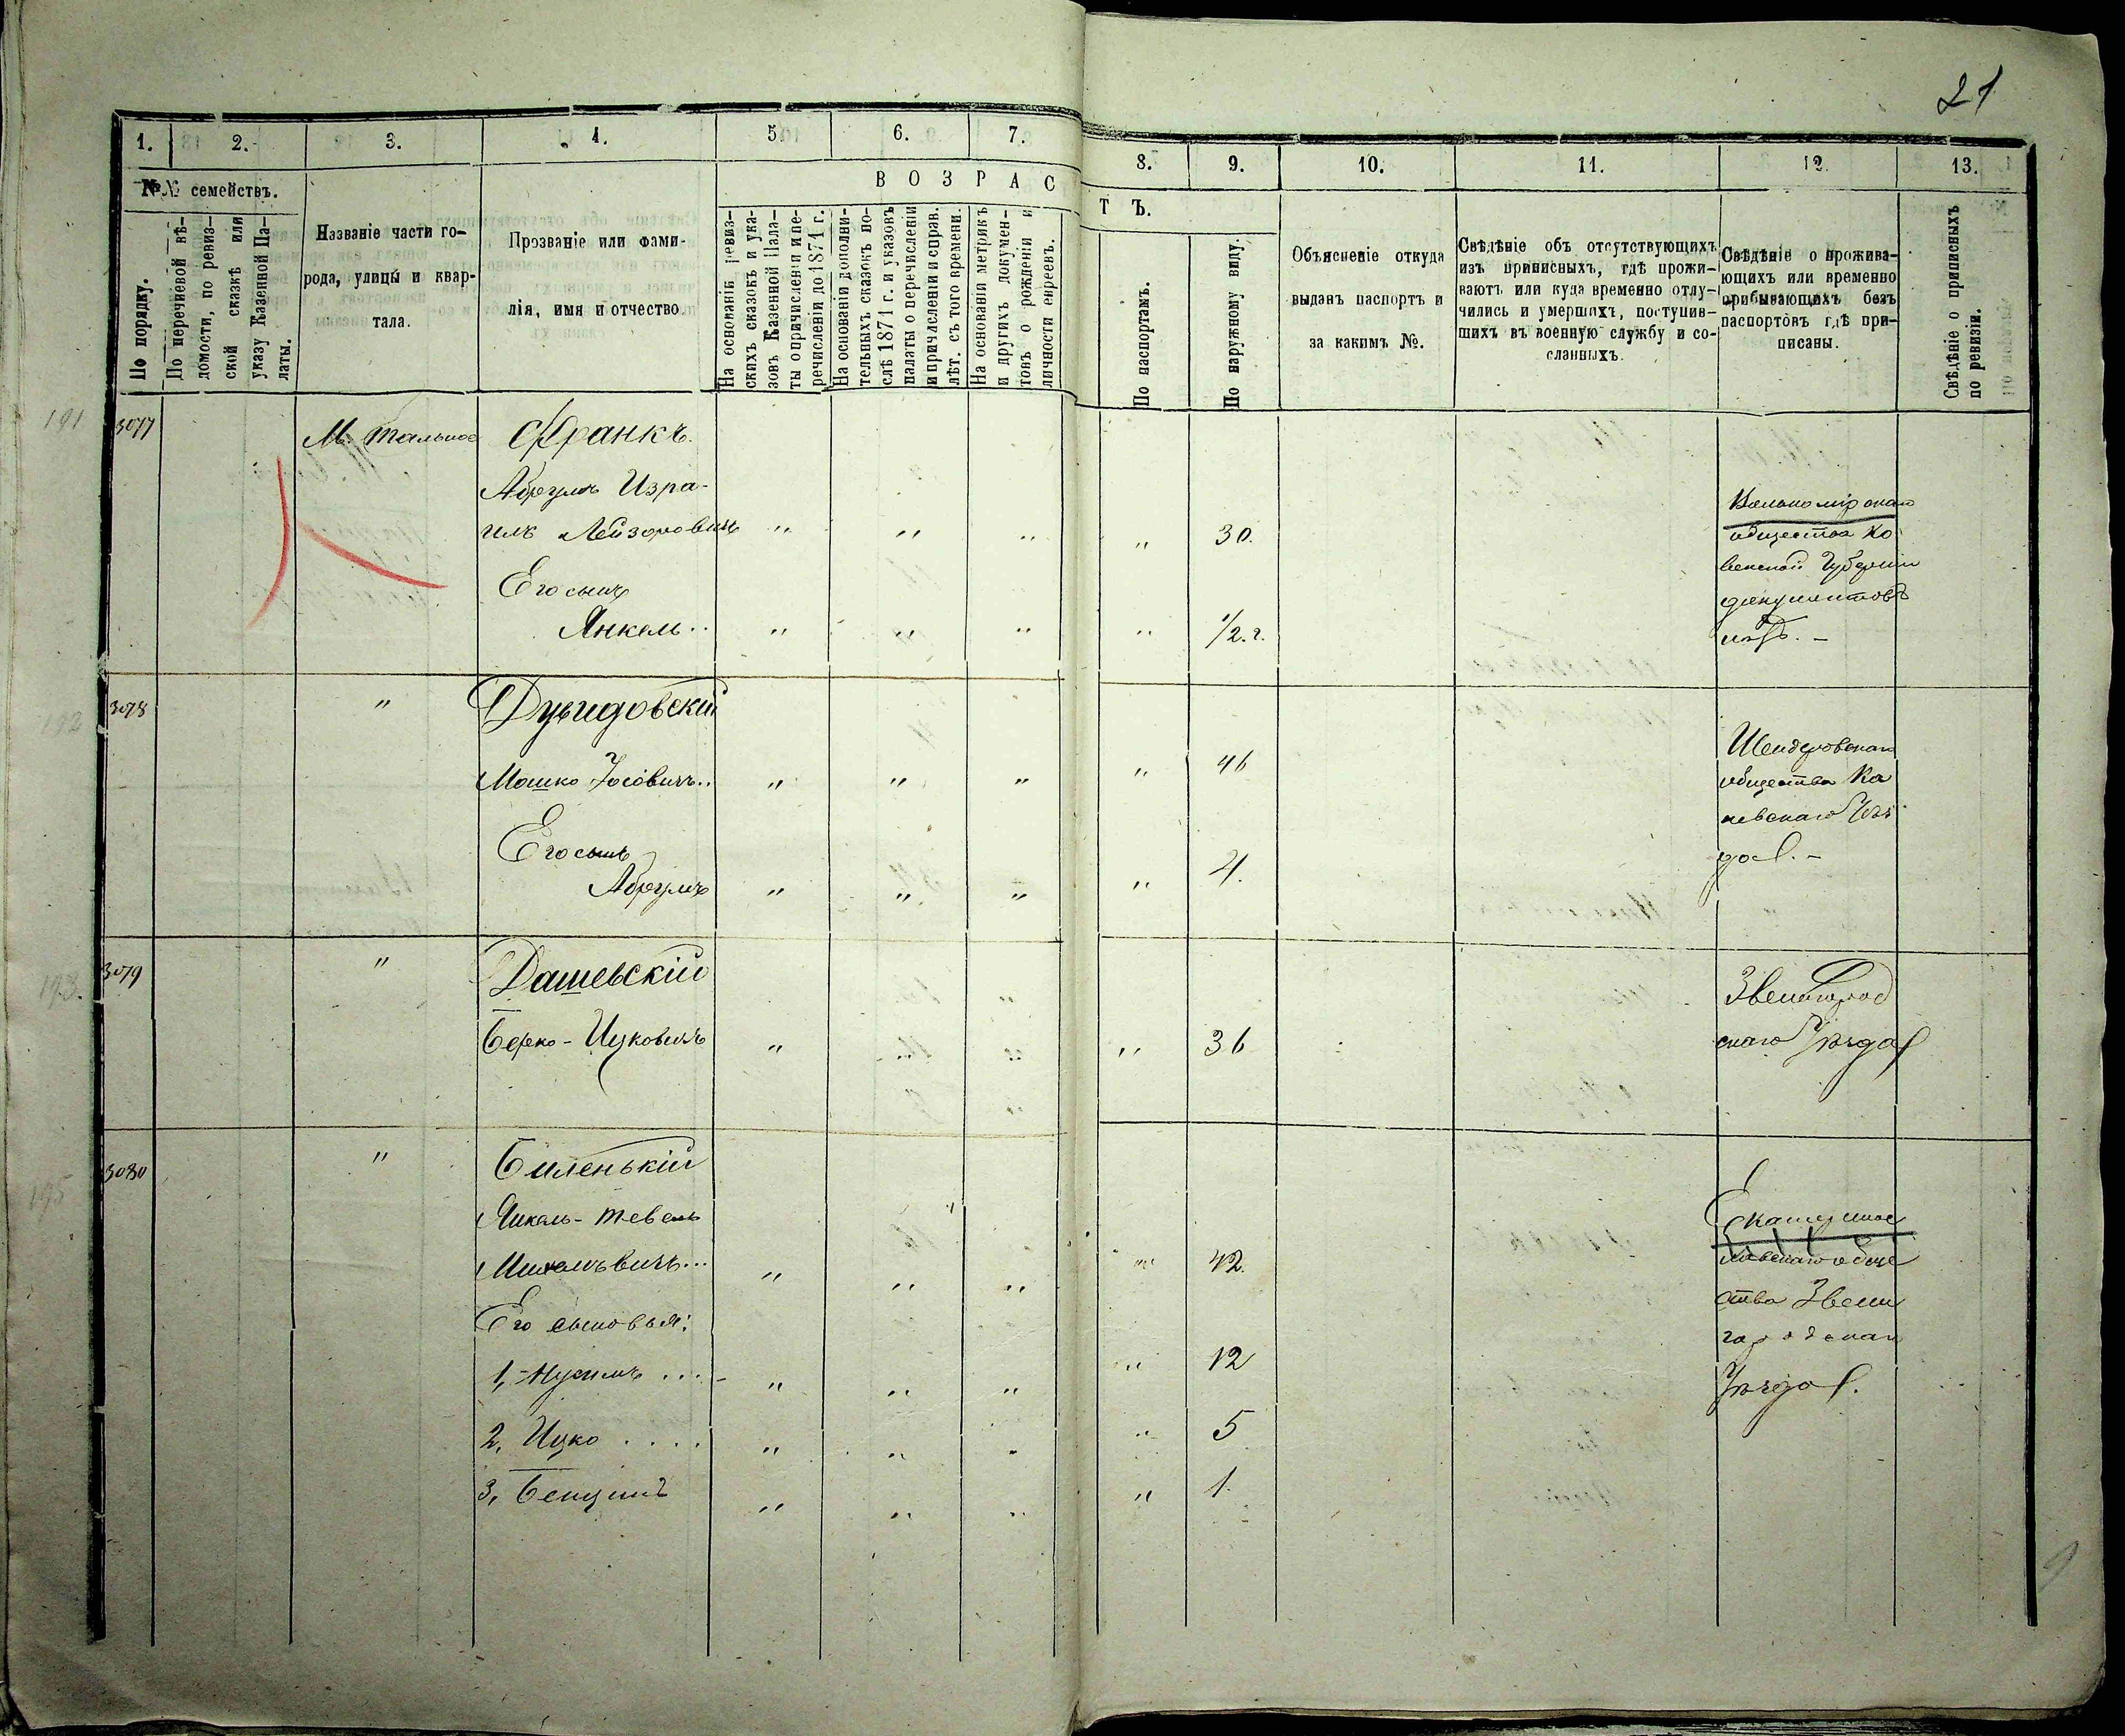 21
1. 2. 3. 4. 5. 6. 7. 8. 9. 10. 11. 12. 13.
№№ семействъ.
По порядку.
По перечневой вѣ-
домости, по ревиз-
ской сказкѣ или
указу Казенной Па-
латы.
Названіе части го-
рода, улицы и квар-
тала.
Прозваніе или фами-
лія, имя и отчество.
ВОЗРАСТЪ.
На основаніи ревиз-
скихъ сказокъ и ука-
зовъ Казенной Пала-
ты о причисленіи и пе-
речисленіи до 1871 г.
На основаніи дополни-
тельныхъ сказокъ по-
слѣ 1871 г. и указовъ
палаты о перечисленіи
и причисленіи и справ.
лѣт. съ того времени.
На основаніи метрикъ
и другихъ докумен-
товъ о рожденіи и
личности евреевъ.
По паспортамъ.
По наружному виду.
Объясненіе откуда
выданъ паспортъ и
за какимъ №.
Свѣдѣніе объ отсутствующихъ
изъ приписныхъ, гдѣ прожи-
ваютъ или куда временно отлу-
чились и умершихъ, поступив-
шихъ въ военную службу и со-
сланныхъ.
Свѣдѣніе о прожива-
ющихъ или временно
прибывающихъ безъ
паспортовъ гдѣ при-
писаны.
Свѣдѣніе о приписныхъ
по ревизіи.
191 3077 М. Тальное Франкъ.
Абрумъ Изра-
иль Лейзоровичъ " " " " 30.
Его сынъ
Янкель.. " " " " 1/2. г.
Вилькомірскаго
общества Ко
венской Губерніи
документовъ
нѣтъ. -
192 3078 "
Мошко Іосіовичъ.. " " " " 46
Его сынъ
Абрумъ " " " " 4.
Шендеровскаго
общества Ка
невскаго Уѣз
да. -
193. 3079 " Дашевскій
Берко - Ицковичъ " " " " 36
Звенигород
скаго Уѣзда
195 3080 " Биленькій
Янкель - Тевель
" " " " 42.
Его сыновья:
1, Нусимъ .... " " " " 12
2, Ицко .... " " " " 5
3, Бенціинъ " " " " 1.
Екатерино
польскаго обще
ства Звени
городскаго
Уѣзда.